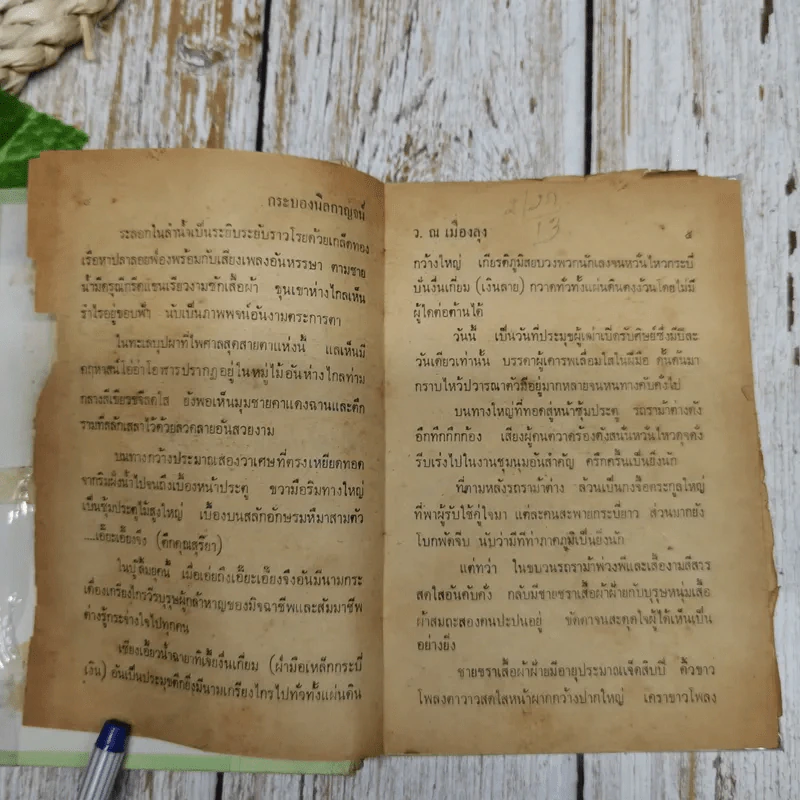 กระบองนิลกาญจน์
ระลอกในลำน้ำเป็นระยิบระยับราวโรยด้วยเกล็ดทอง
เรือหาปลาลอยฟ่องพร้อมกับเสียงเพลงอันหรรษา ตามชาย
น้ำมีดรุณีกรีดแขนเรียวงามซักเสื้อผ้า ขุนเขาห่างไกลเห็น
รำไรอยู่ขอบฟ้า นับเป็นภาพพจน์อันงามตระการตา
ในทะเลบุปผาที่ไพศาลสุดสายตาแห่งนี้ แลเห็นมี
คฤหาสน์โอ่อ่าโอฬารปรากฏอยู่ในหมู่ไม้อันห่างไกลท่าม
กลางสีเขียวขจีสดใส ยังพอเห็นมุมชายคาแดงฉานและตึก
รามที่สลักเสลาไว้ด้วยลวดลายอันสวยงาม
บนทางกว้างประมาณสองวาเศษที่ตรงเหยียดทอด
จากริมฝั่งน้ำไปจนถึงเบื้องหน้าประตู ขวามือริมทางใหญ่
เป็นซุ้มประตูไม้สูงใหญ่ เบื้องบนสลักอักษรมหึมาสามตัว
....เอี๊ยะเอี้ยงจึง (ตึกคุณสุริยา)
ในบู๊ลิ้มยุคนี้ เมื่อเอ่ยถึงเอี๊ยะเอี้ยงจึงอันมีนามกระ
เดื่องเกรียงไกรวีรบุรุษผู้กล้าหาญของมิจฉาชีพและสัมมาชีพ
ต่างรู้กระจ่างใจไปทุกคน
(เงิน) อันเป็นประมุขตึกยิ่งมีนามเกรียงไกรไปทั่วทั้งแผ่นดิน
ว. ณ เมืองลุง
๕
13
กว้างใหญ่ เกียรติภูมิสยบวงพวกนักเลงจนหวั่นไหวกระบี่
บั่นงึ่นเกี่ยม (เงินลาย) กวาดทั่วทั้งแผ่นดินตงง้วนโดยไม่มี
ผู้ใดต่อต้านได้
วันนี้ เป็นวันที่ประมุขผู้เฒ่าเปิดรับศิษย์ซึ่งมีปีละ
วันเดียวเท่านั้น บรรดาผู้เคารพเลื่อมใสในฝีมือ ดั้นด้นมา
กราบไหว้ปวารณาตัวก็อยู่มากหลายจนหนทางคับคั่งไป
บนทางใหญ่ที่ทอดสู่หน้าซุ้มประตู รถราม้าต่างดัง
อึกทึกกึกก้อง เสียงผู้คนตวาดร้องดังสนั่นหวั่นไหวดุจดั่ง
รีบเร่งไปในงานชุมนุมอันสำคัญ ครึกครื้นเป็นยิ่งนัก
ที่ตามหลังรถราม้าต่าง ล้วนเป็นกงจื้อตระกูลใหญ่
ที่พาผู้รับใช้คู่ใจมา แต่ละคนสะพายกระบี่ยาว ส่วนมากยัง
โบกพัดจีบ นับว่ามีทีท่าภาคภูมิเป็นยิ่งนัก
แต่ทว่า ในขบวนรถราม้าพ่วงพีและเสื้องามสีสวร
สดใสอันคับคั่ง กลับมีชายชราเสื้อผ้าฝ้ายกับบุรุษหนุ่มเสื้อ
ผ้าสมถะสองคนปะปนอยู่ ขัดตาจนสะดุดใจผู้ได้เห็นเป็น
อย่างยิ่ง
ชายชราเสื้อผ้าฝ้ายมีอายุประมาณเจ็ดสิบปี คิ้วขาว
โพลงตาวาวสดใสหน้าผากกว้างปากใหญ่ เคราขาวโพลง